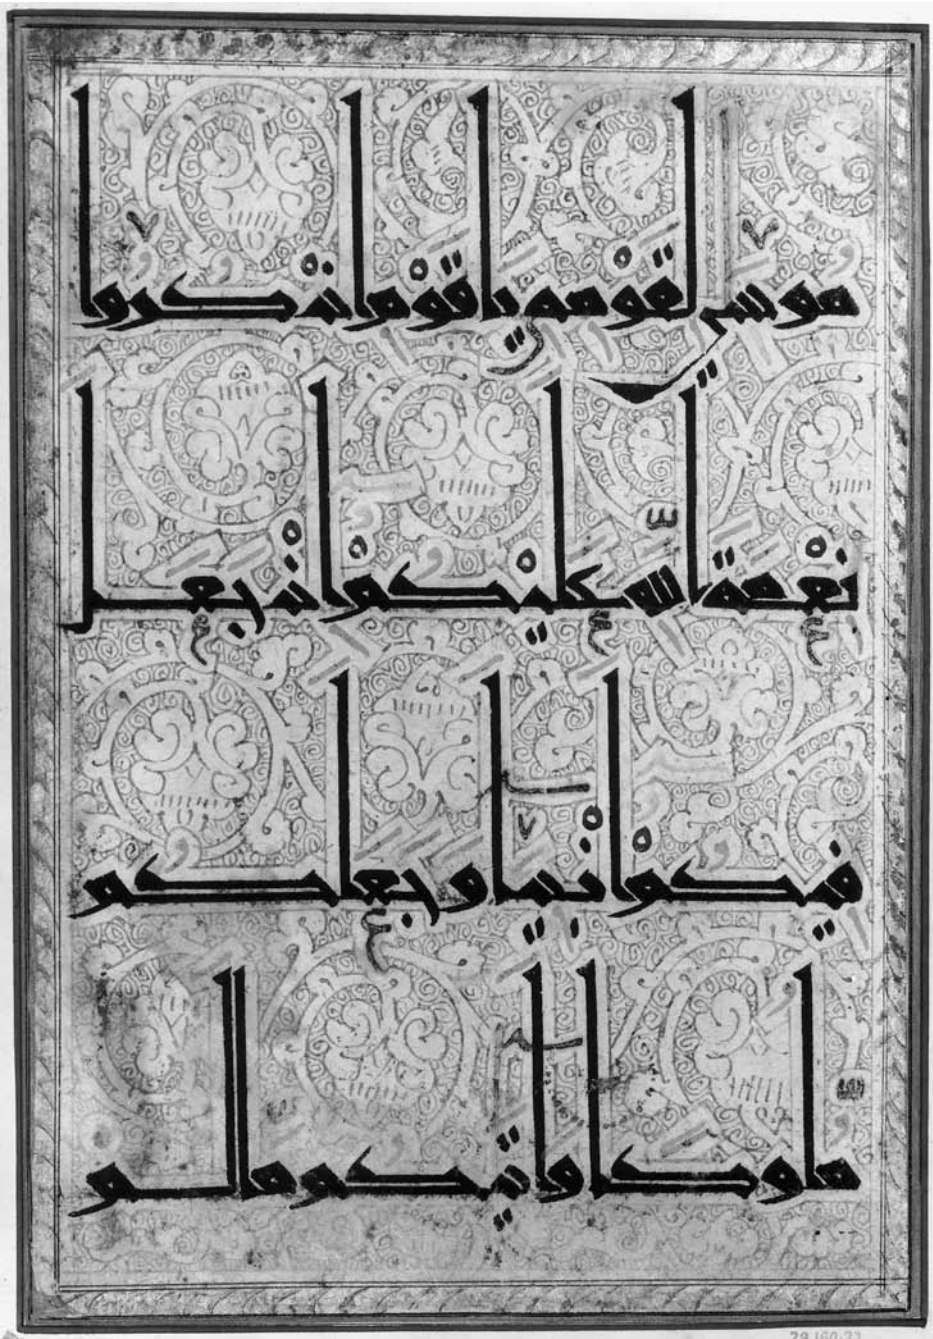 موسى لقومه ياقوم اذكروا
نعمة الله عليكم اذ جعل
فيكم انبيا وجعلكم
ملوكا واتيكم ما لم
29.160.23